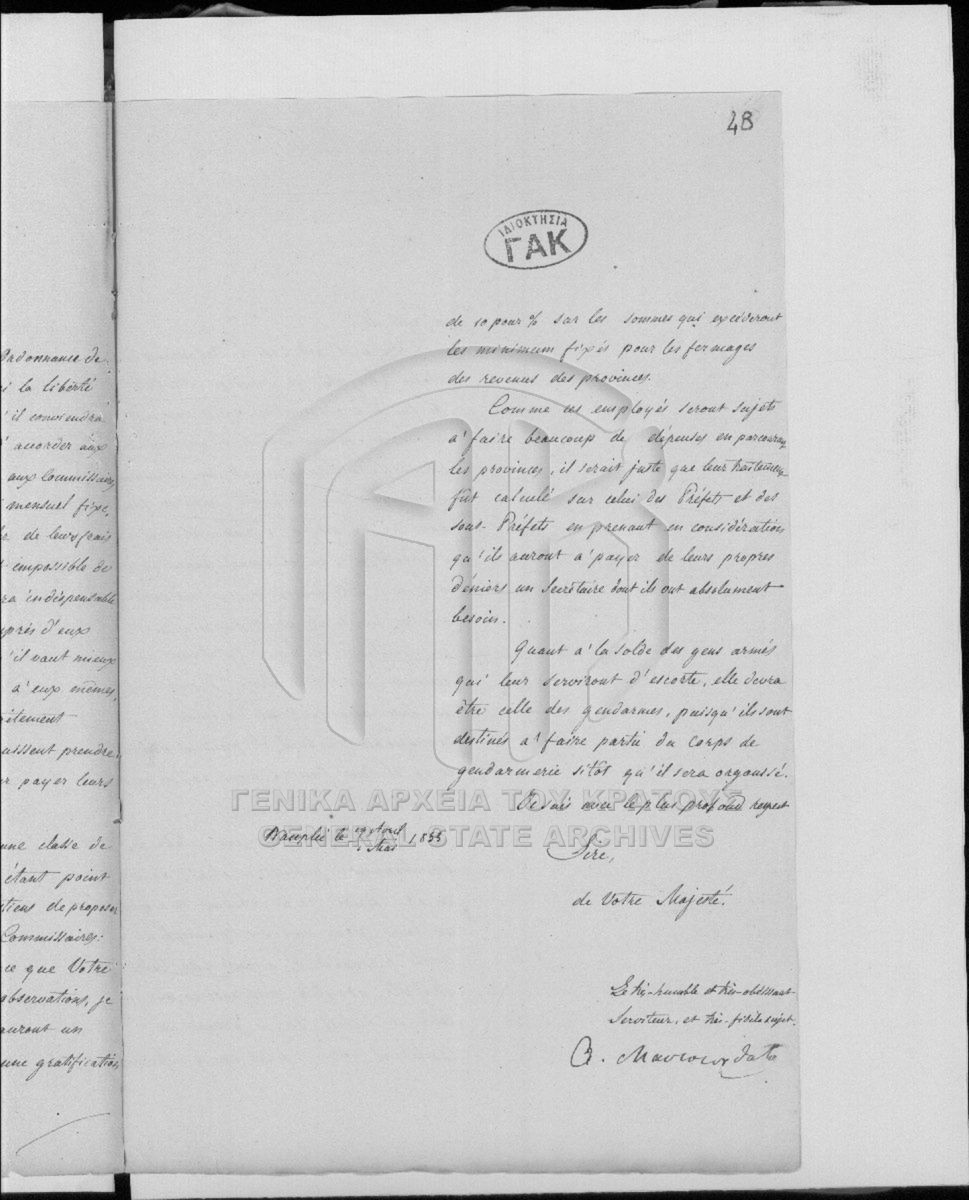 Ordonnance de
la liberté
il conviendra
d'accorder aux
aux Commissaires
mensuel fixe,
de leurs frais
impossible de
indispensable
d'eux
'il vaut mieux
à eux mêmes,
prendre,
payer leurs
une classe de
étant point
de proposer
Commissaires:
ce que Votre
observations, je
auront un
une gratification
48
ΙΔΙΟΚΤΗΣΙΑ
ΓΑΚ
de 10 pour % sur les sommes qui excéderont
les minimum fixés pour les fermages
des revenus des provinces.
Comme ces employés seront sujets
a' faire beaucoup de dépenses en parcourant
les provinces, il serait juste que leur traitement
fût calculé sur celui des Préfets et des
sous-Préfets en prenant en considération
qu'ils auront a' payer de leurs propres
déniers un Secrétaire dont ils ont absolument
besoin.
Quant a' la solde des gens armés
qui leur serviront d'escorte, elle devra
être celle des gendarmes, puisqu'ils sont
destinés a' faire partie du corps de
gendarmerie sitôt qu'il sera
Je suis avec le plus profond respect
ΓΕΝΙΚΑ ΑΡΧΕΙΑ ΤΟΥ ΚΡΑΤΟΥΣ
GENERAL STATE ARCHIVES
Nauplie le Avril
Mai
Sire,
de Votre Majesté.
Le très-humble et très-obéissant
Serviteur, et très-fidèle sujet.